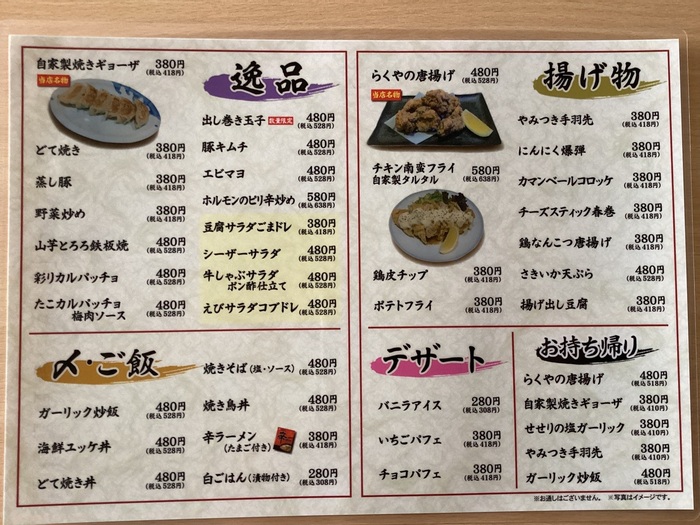 逸品
自家製焼きギョーザ 380円
(税込418円)
当店名物
どて焼き 380円
(税込418円)
蒸し豚 380円
(税込418円)
野菜炒め 380円
(税込418円)
山芋とろろ鉄板焼 480円
(税込528円)
彩りカルパッチョ 480円
(税込528円)
たこカルパッチョ
梅肉ソース 480円
(税込528円)
出し巻き玉子 数量限定 480円
(税込528円)
豚キムチ 480円
(税込528円)
エビマヨ 480円
(税込528円)
ホルモンのピリ辛炒め 580円
(税込638円)
豆腐サラダごまドレ 380円
(税込418円)
シーザーサラダ 480円
(税込528円)
牛しゃぶサラダ
ポン酢仕立て 480円
(税込528円)
えびサラダコブドレ 480円
(税込528円)
揚げ物
らくやの唐揚げ 480円
(税込528円)
当店名物
チキン南蛮フライ
自家製タルタル 580円
(税込638円)
鶏皮チップ 380円
(税込418円)
ポテトフライ 380円
(税込418円)
やみつき手羽先 380円
(税込418円)
にんにく爆弾 380円
(税込418円)
カマンベールコロッケ 380円
(税込418円)
チーズスティック春巻 380円
(税込418円)
鶏なんこつ唐揚げ 380円
(税込418円)
さきいか天ぷら 380円
(税込418円)
揚げ出し豆腐 380円
(税込418円)
〆・ご飯
ガーリック炒飯 480円
(税込528円)
海鮮ユッケ丼 480円
(税込528円)
どて焼き丼 480円
(税込528円)
焼きそば(塩・ソース) 480円
(税込528円)
焼き鳥丼 480円
(税込528円)
辛ラーメン
(たまご付き) 380円
(税込418円)
白ごはん(漬物付き) 280円
(税込308円)
デザート
バニラアイス 280円
(税込308円)
いちごパフェ 380円
(税込418円)
チョコパフェ 380円
(税込418円)
お持ち帰り
らくやの唐揚げ 480円
(税込518円)
自家製焼きギョーザ 380円
(税込410円)
せせりの塩ガーリック 380円
(税込410円)
やみつき手羽先 380円
(税込410円)
ガーリック炒飯 480円
(税込518円)
※お通しはございません。 ※写真はイメージです。